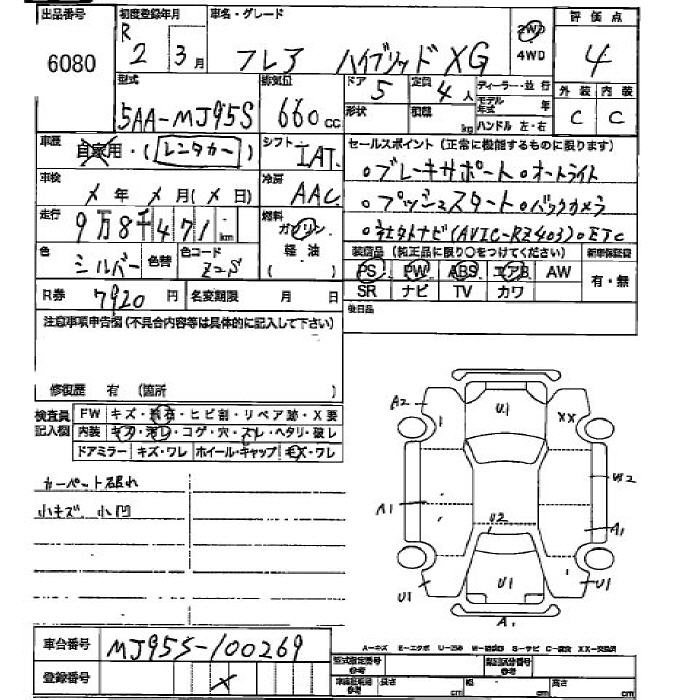 出品番号 初度登録年月 車名・グレード 評価点
6080 R 2 3月 フレア ハイブリッド XG 2WD 4WD 4
型式 排気量 ドア 定員 ディーラー・並行 外装 内装
5AA-MJ95S 660cc 5 4人 モデル年式 年 C C
形状 積載 kg ハンドル 左・右
車歴 自家用・(レンタカー) シフト IAT. セールスポイント (正常に機能するものに限ります)
車検 メ年 メ月(メ日) 冷房 AAC ○ブレーキサポート○オートライト
○プッシュスタート○バックカメラ
走行 9万8千471km 燃料 ガソリン 軽油 ○社外ナビ(AVIC-RZ403)○ETC
色 シルバー 色替 色コード Z2S 装備品 (純正品に限り○をつけてください) 新車保証書
PS PW ABS エアB AW 有・無
SR ナビ TV カワ
R券 7920円 名変期限 月 日
後日品
注意事項申告欄(不具合内容等は具体的に記入して下さい)
修復歴 有 (箇所 )
検査員記入欄 FW キズ・飛石・ヒビ割・リペア跡・X要
内装 キズ・汚レ・コゲ・穴・スレ・ヘタリ・破レ
ドアミラー キズ・ワレ ホイール・キャップ キズ・ワレ
カーペット破れ
小キズ 小凹
A2 U1 XX
W2
A1 U2 A1
U1 U1 U1
A1
車台番号 MJ95S-100269
登録番号 メ
A-キズ E-エクボ S-サビ C-腐食 XX-交換済
型式指定番号 参考 類別区分番号 参考
cm 幅 cm 高さ cm